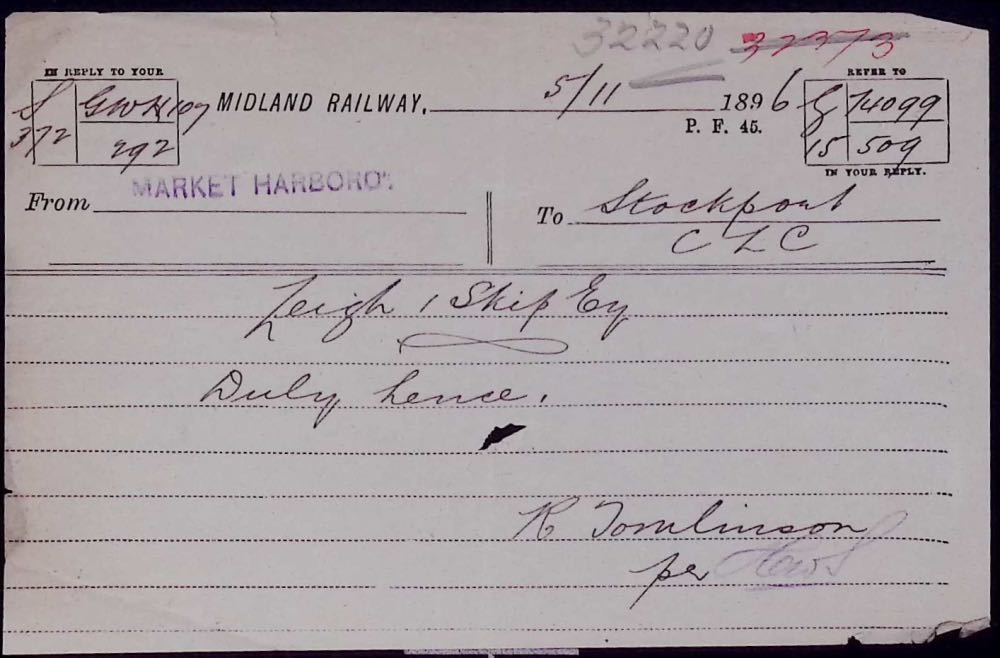 32220 32373
IN REPLY TO YOUR
S 372 GWH 107 292
MIDLAND RAILWAY, 5/11 1896
P. F. 45.
REFER TO
G 15 74099 509
IN YOUR REPLY.
From MARKET HARBORO'.
To Stockport
C L C
Leigh 1 Skip Ey
Duly hence.
R Tomlinson
per